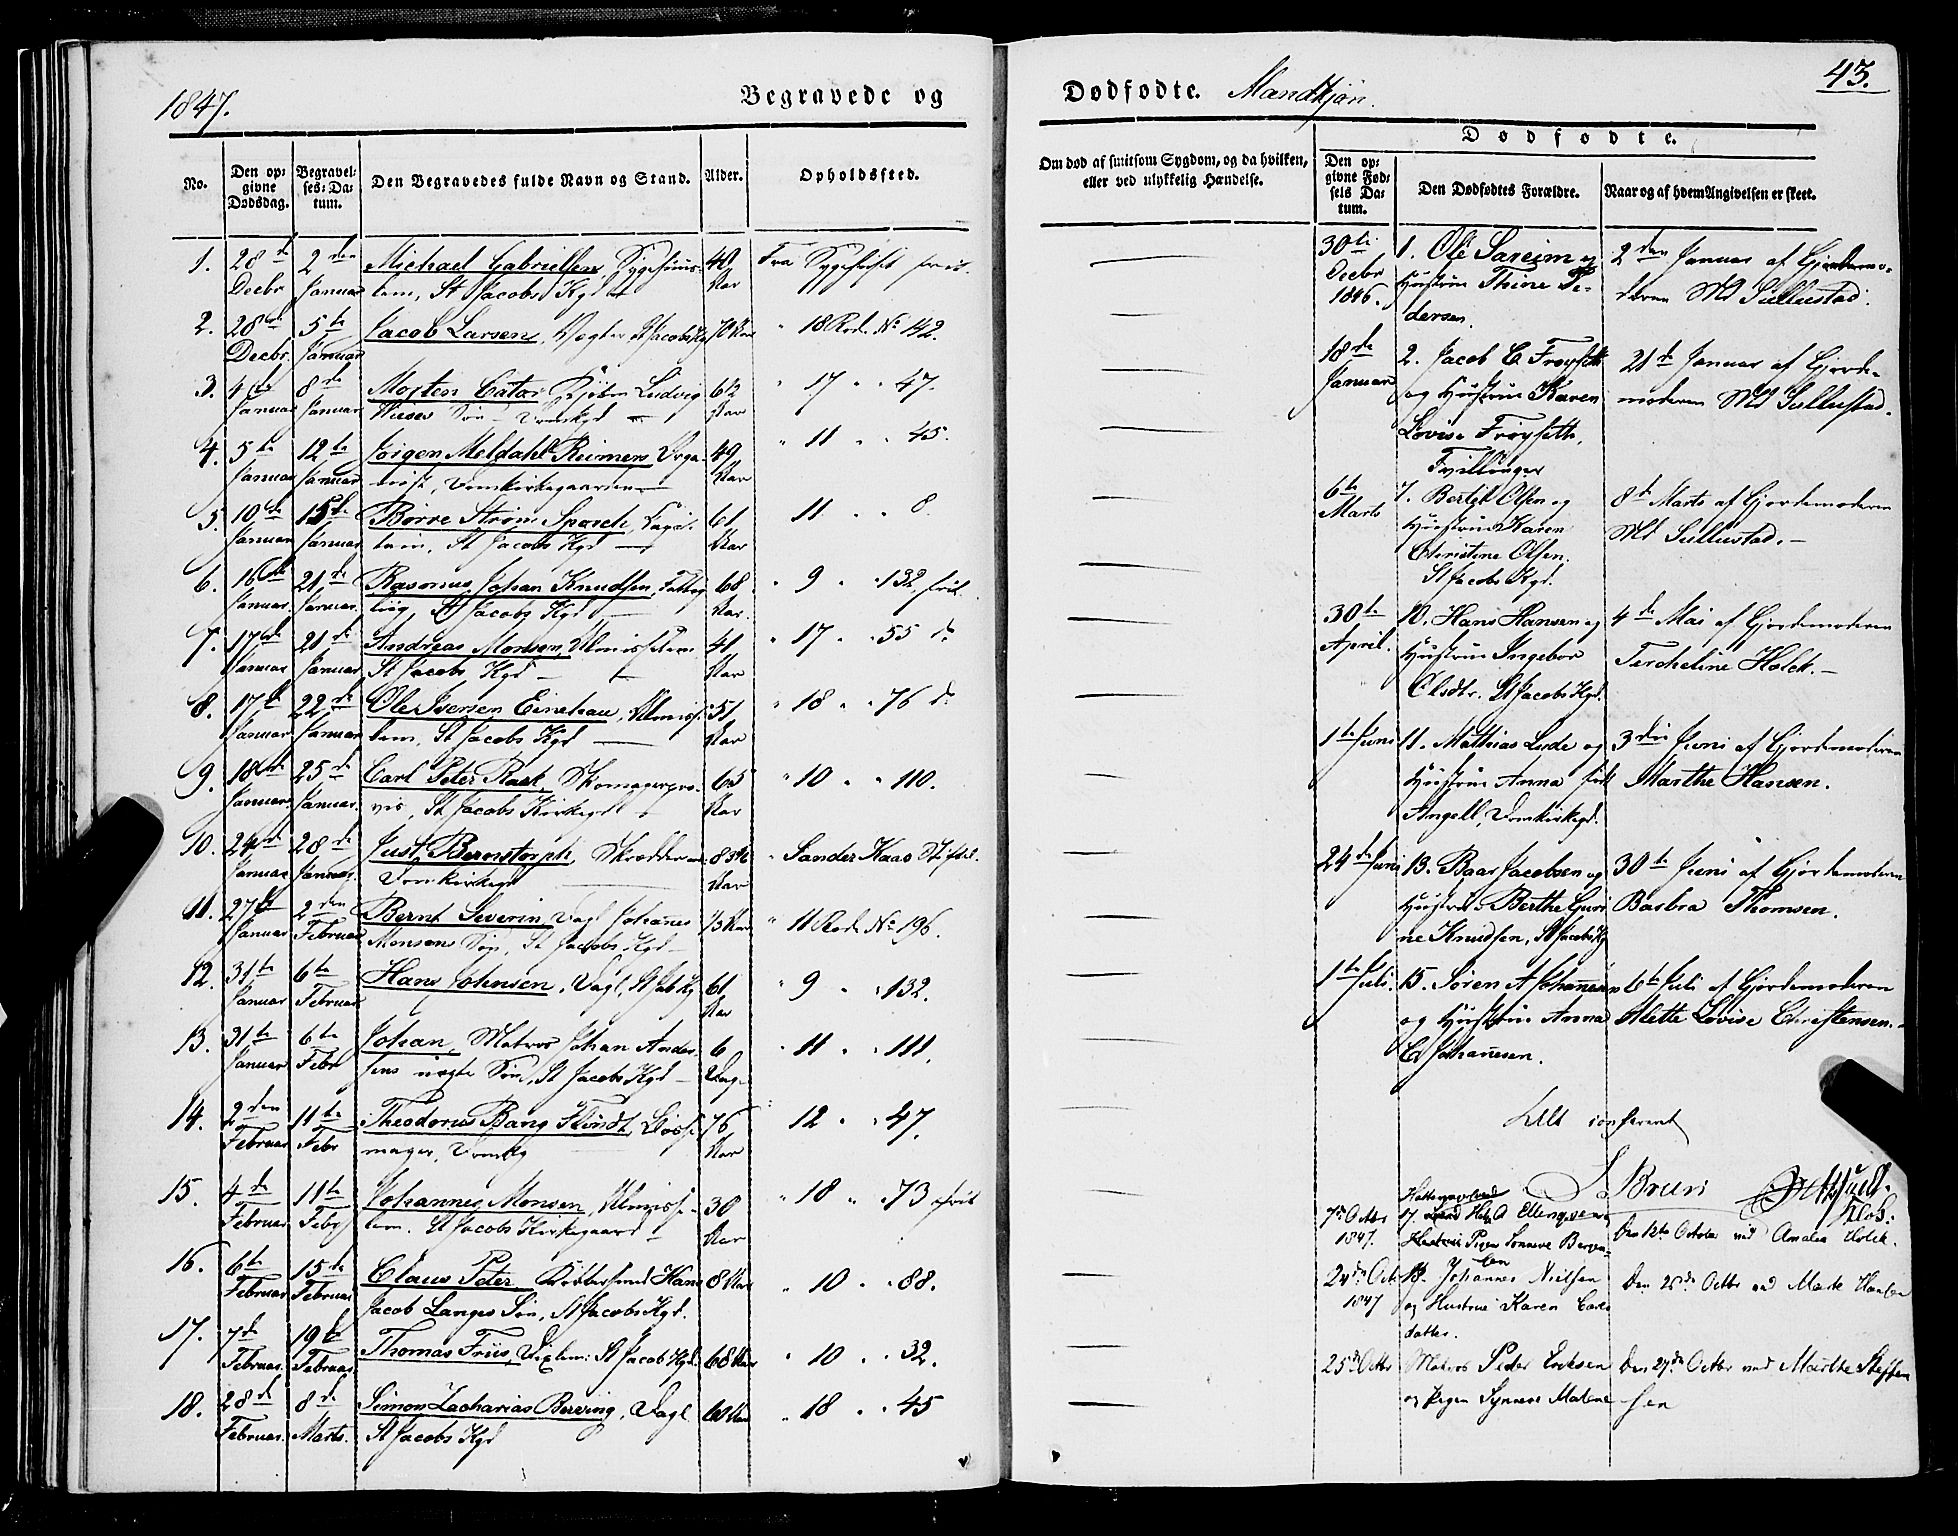 1847.
Begravede og
No.
Den opgivne Dødsdag.
Begravelses-Datum.
Den Begravedes fulde Navn og Stand.
Alder.
Opholdssted.
1. 28de Decbr 2den Januar Michael Gabrielsen, 40 Aar Fra Sygestift frit.
lem, St Jacobs Kgd
2. 28de Decbr. 5te Januar Jacob Larsen, Vægter St Jacobs Kg 70 Aar " 18 Rode No 142.
3. 4de Januar 8de Januar Morten Cator Kjøbm Ludvig 62 Aar " 17 " " 47.
Wieses Søn Domkgd
4. 5te Januar 12te Januar Jørgen Meldahl Reimers Orga- 49 Aar " 11 " " 45.
nist, Domkirkegaarden
5. 10de Januar 15de Januar Børre Strøm Sparch, 61 Aar 11 " " 8.
St Jacobs Kgd
6. 16de Januar 21de Januar Rasmus Johan Knudsen, Fattig 68 Aar. " 9 " " 132 frit.
St Jacobs Kgd
7. 17de Januar 21de Januar Andreas Monsen, Almisselem 41 Aar " 17 " " 55 do
St Jacobs Kgd
8. 17de Januar 22de Januar Ole Iversen Einehau, Almisse- 51 Aar " 18 " " 76 do
lem, St Jacobs Kgd
9. 18de Januar 25de Januar. Carl Peter Rask, Skomagerpro- 65 Aar " 10 " " 110.
vis, St Jacobs Kirkegd
10. 24de Januar 28de Januar. Just Bernstorph, Skrædder 83½ Aar " Sander Kaas Stiftel.
Domkirkegd
11. 27de Januar 2den Februar Bernt Severin, Dagl Johannes ½ Aar " 11 Rode No 196.
Monsens Søn, St Jacobs Kgd
12. 31te Januar 6te Februar Hans Johnsen, Dagl, St Jab Kg 61 Aar " 9 " " 132.
13. 31te Januar 6te Febr Johan, Matros Johan Ander- 6 Dag " 11 " " 111.
sens uegte Søn, St Jacobs Kgd
14. 2den Februar 11te Febr Theodorus Bang Flindt, 76 Aar 12 " " 47.
mager, Domkg
15. 4de Februar 11te Febr Johannes Monsen, Almisse- 30 Aar " 18 " " 73 frit
lem. St Jacobs Kirkegaard
16. 6te Februar 15de Februar Claus Peter, Hans 8 Aar " 10 " " 88.
Jacob Langes Søn, St Jacobs Kgd.
17. 7de Februar. 19de Februar Thomas Friis, St Jacob Kgd. 68 Aar " 10 " " 32.
18. 28de Februar. 8de Marts. Simon Zacharias Berving, Dagl 60 Aar " 18 " " 45
St Jacobs Kgd
Dødfødte. Mandkjøn.
43.
Om død af smitsom Sygdom, og da hvilken, eller ved ulykkelig Hændelse.
Dødfødte.
Den opgivne Fødsels Datum.
Den Dødfødtes Forældre.
Naar og af hvem Angivelsen er skeet.
30te Decbr 1846. 1. Ole Sareim og 2den Januar af Gjordemo-
Hustrue Thine Pe- deren Md Sullustad.
dersen.
18de Januar 2. Jacob C Frøyseth 21de Januar af Gjorde-
og Hustrue Karen moderen Md Sullustad.
Lovise Frøyseth,
Tvillinger
6te Marts 7. Bertel Olsen og 8de Marts af Gjordemoderen
Hustrue Karen Md Sullustad.
Christine Olsen.
St Jacobs Kgd.
30te April. 10. Hans Hansen og 4de Mai af Gjordemoderen
Hustrue Ingebor Tercheline Holck.
Olsdtr. St Jacobs Kgd.
1te Juni 11. Mathias Lude og 3die Juni af Gjordemoderen
Hustrue Anna født Marthe Hansen.
Angell, Domkirkgd.
24de Juni 13. Baar Jacobsen og 30te Juni af Gjordemoderen
Hustrue Berthe Guri- Barbra Thomsen.
ne Knudsen, St Jacobs Kg
1te Juli. 15. Søren A Johannesen 6te Juli af Gjordemoderen
og Hustrue Anna Mette Lovise Christensen.
C Johannesen.
conferent
J Bruun
7de Octbr 1847. 17. Ellingsen Den 12te October ved Amalea Holck.
Pigen Synneve Bergen-
24de Oct 1847 18. Johannes Nielsen Den 28de Octbr ved Marte Hansen
og Hustrue Karen Carls
datter.
25de Octbr Matros Peder Eriksen Den 27de Octbr ved Marthe Steffen-
og Pigen Synneve Malene sen